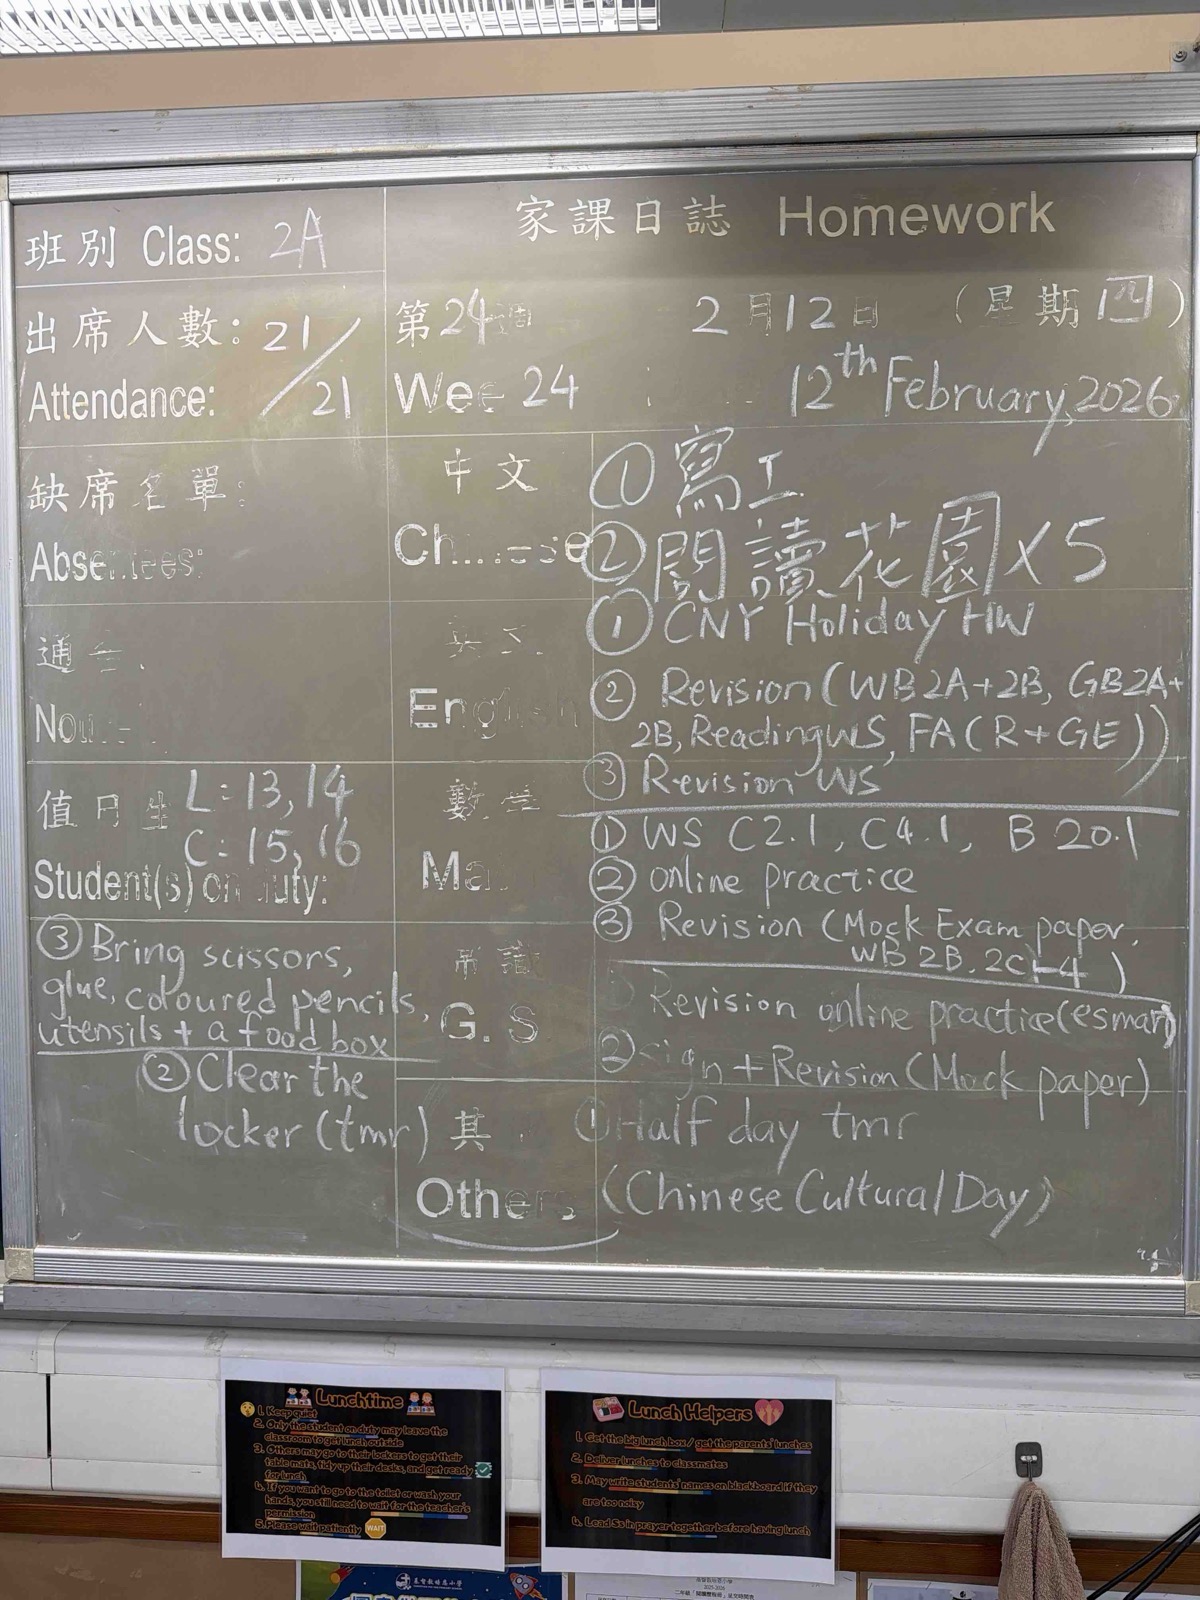 班別 Class: 2A
家課日誌 Homework
出席人數: 21/21
Attendance:
第24週 2月12日 (星期四)
Wee 24 12th February, 2026
缺席名單:
Absentees:
中文
Chinese
① 寫工
② 閱讀花園x5
通告
英文
English
① CNY Holiday HW
② Revision (WB2A+2B, GB2A+
2B, Reading WS, FA(R+GE))
③ Revision WS
值日生 L: 13, 14
C: 15, 16
Student(s) on duty:
數學
Ma
① WS C2.1, C4.1, B 20.1
② online practice
③ Revision (Mock Exam paper,
WB 2B, 2C1-4)
常識
G.S
① Revision online practice (esmart)
② sign + Revision (Mock paper)
其
Others
① Half day tmr
(Chinese Cultural Day)
② Clear the
locker (tmr)
③ Bring scissors,
glue, coloured pencils,
utensils + a food box
Lunchtime
1. Keep quiet
2. Only the student on duty may leave the
classroom to get lunch outside
3. Others may go to their lockers to get their
table mats, tidy up their desks, and get ready
for lunch
4. If you want to go to the toilet or wash your
hands, you still need to wait for the teacher's
permission
5. Please wait patiently
WAIT
Lunch Helpers
1. Get the big lunch box / get the parents' lunches
2. Deliver lunches to classmates
3. May write students' names on blackboard if they
are too noisy
4. Lead Ss in prayer together before having lunch
2025-2026